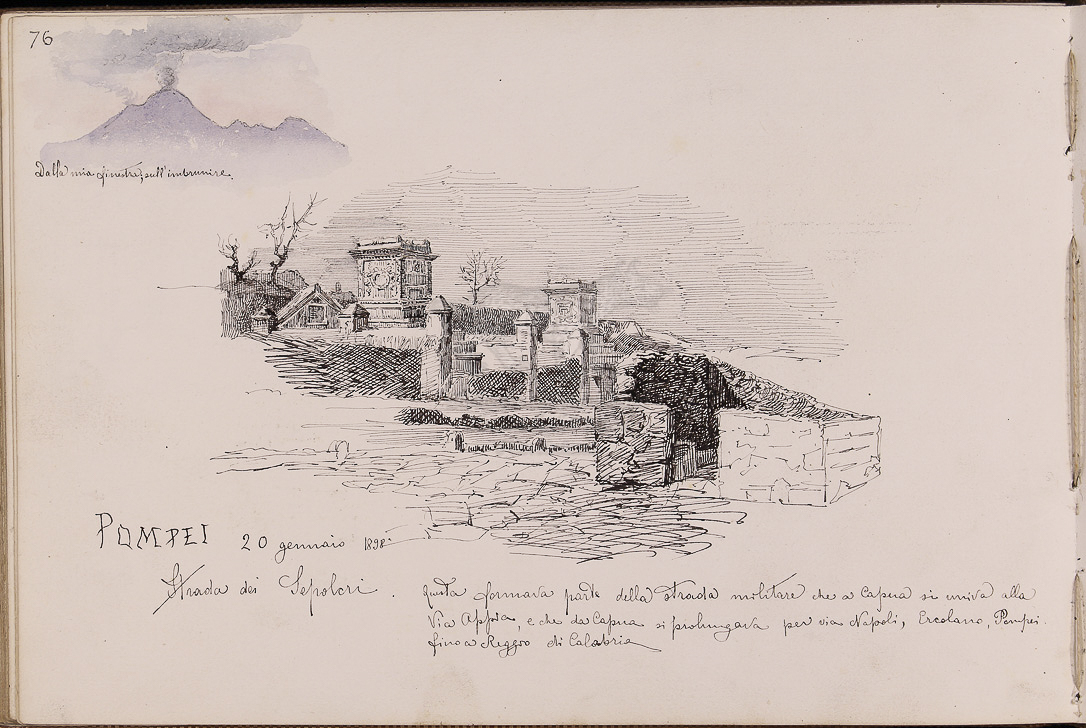 76
Dalla mia finestra, sull'imbrunire.
POMPEI 20 gennaio 1898
Strada dei Sepolcri.
Questa formava parte della strada militare che a Capua si univa alla
Via Appia, e che da Capua si prolungava per via Napoli, Ercolano, Pompei.
fino a Reggio di Calabria